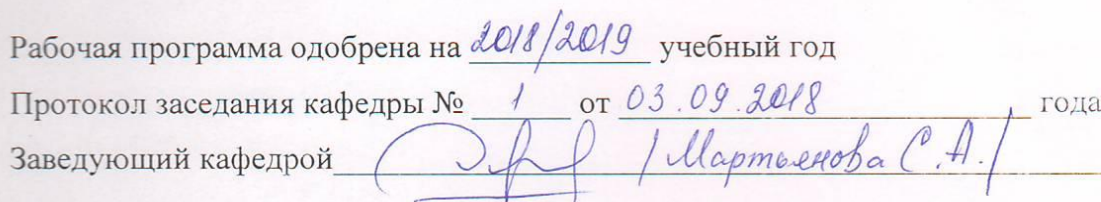 Рабочая программа одобрена на 2018/2019 учебный год
Протокол заседания кафедры № 1 от 03.09.2018 года
Заведующий кафедрой / Мартьянова С.А./